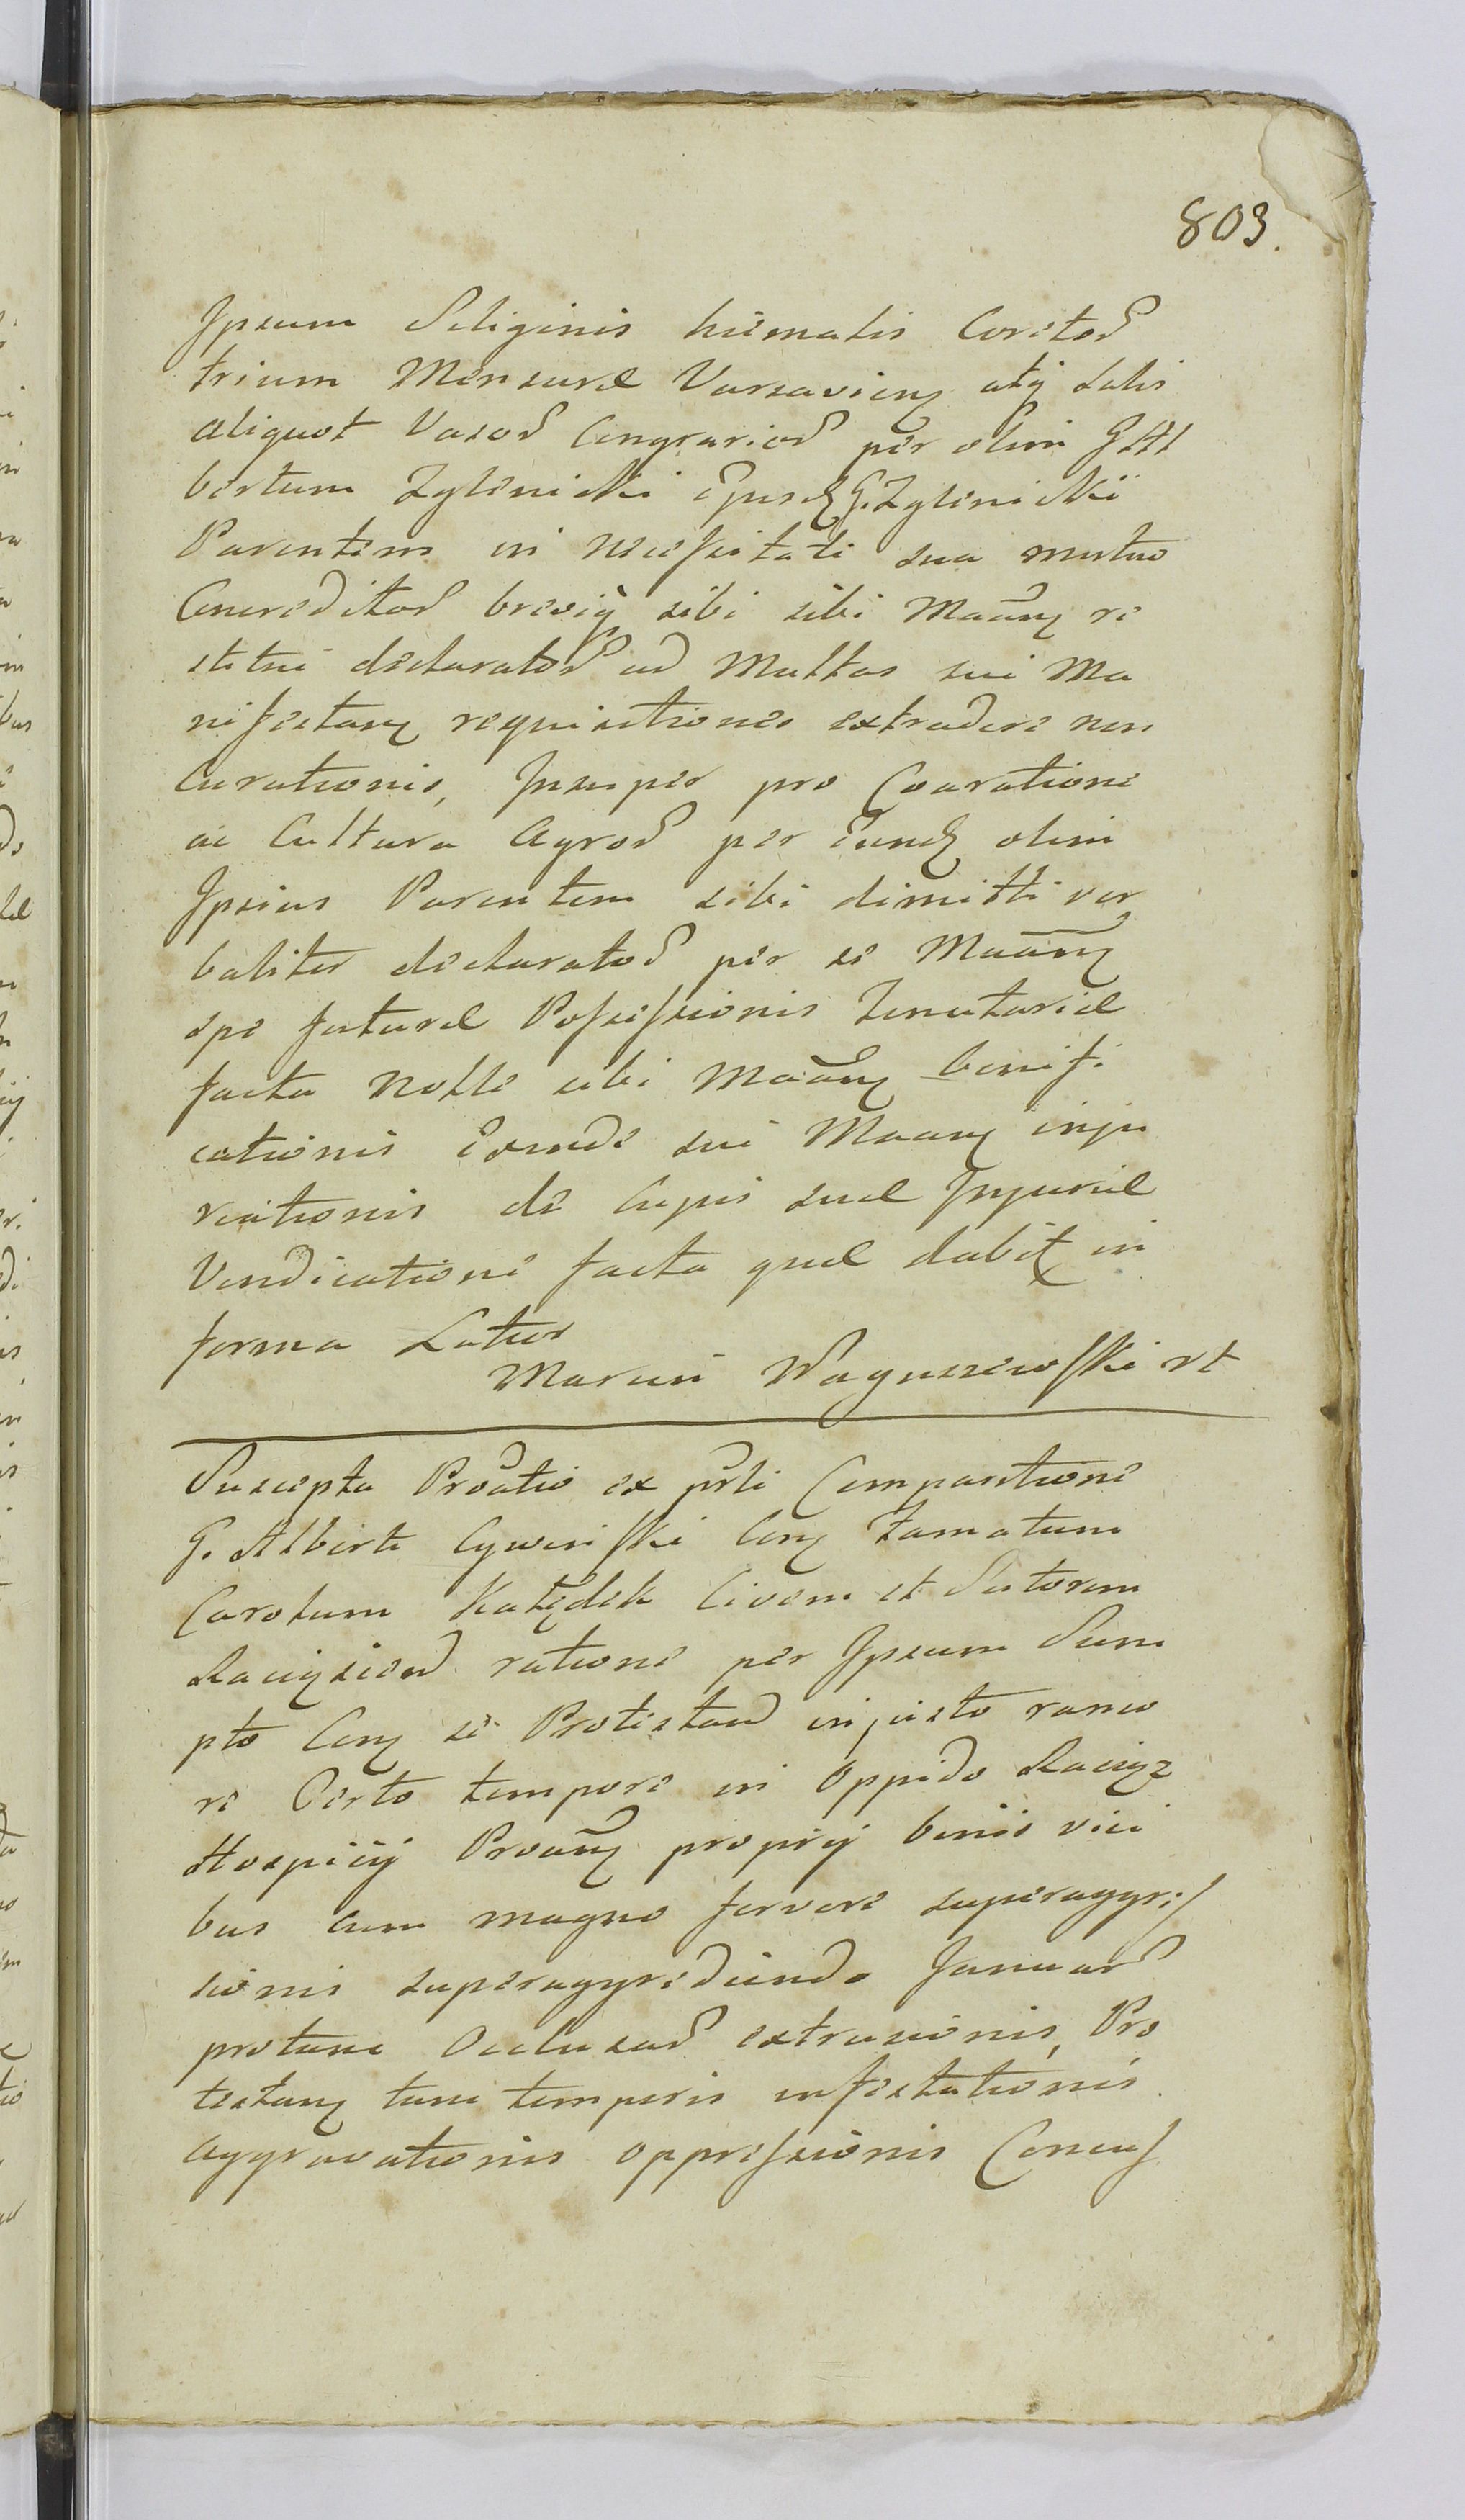 803.
Ipsum Siliginis hiemalis Coretoȓ
trium Mensuræ Varsavienȝ atq̃ Salis
aliquot Vasoȓ Congrarioȓ per olim G. Al
bertum Zglenicki ejusdȝ G. Zglenickii
Parentem in necessitate sua mutuo
Concreditoȓ breviq̃ sibi sibi Maanȝ re
stitui declaratoȓ ad Multas sui Ma
nifestanȝ requisitiones extradere non
Curationis, Insuper pro Coaratione
ac Cultura Agroȓ per eundȝ olim
Ipsius Parentem sibi dimitti ver
baliter declaratoȓ per se Maanȝ
spe futuræ Possessionis Tenutariæ
facta Nolle sibi Maanȝ bonifi
cationis Eounde sui Maanȝ inju
riationis de Cujus suæ Injuriæ
Vindicatione facta quæ dabitȝ in
forma Latior
Marcin Waguszewski rt
Suscepta Proãtio ex pr̃ti Comparitione
G. Alberti Cywinski Conȝ Famatum
Carolum Kat Civem et Sutorem
Raciąsieñ ratione per Ipsum Sum
pto Conȝ se Protestañ injusto ranco
re Certo tempore in Oppido Raciąz
Hospicij Proanȝ proprij binis vici
bus cum magno fervore superaggres
sionis superaggrediendo Januaȓ
protunc Occlusaȓ extrusionis, Pro
testanȝ tunc temporis infestationis
aggravationis oppressionis Concus